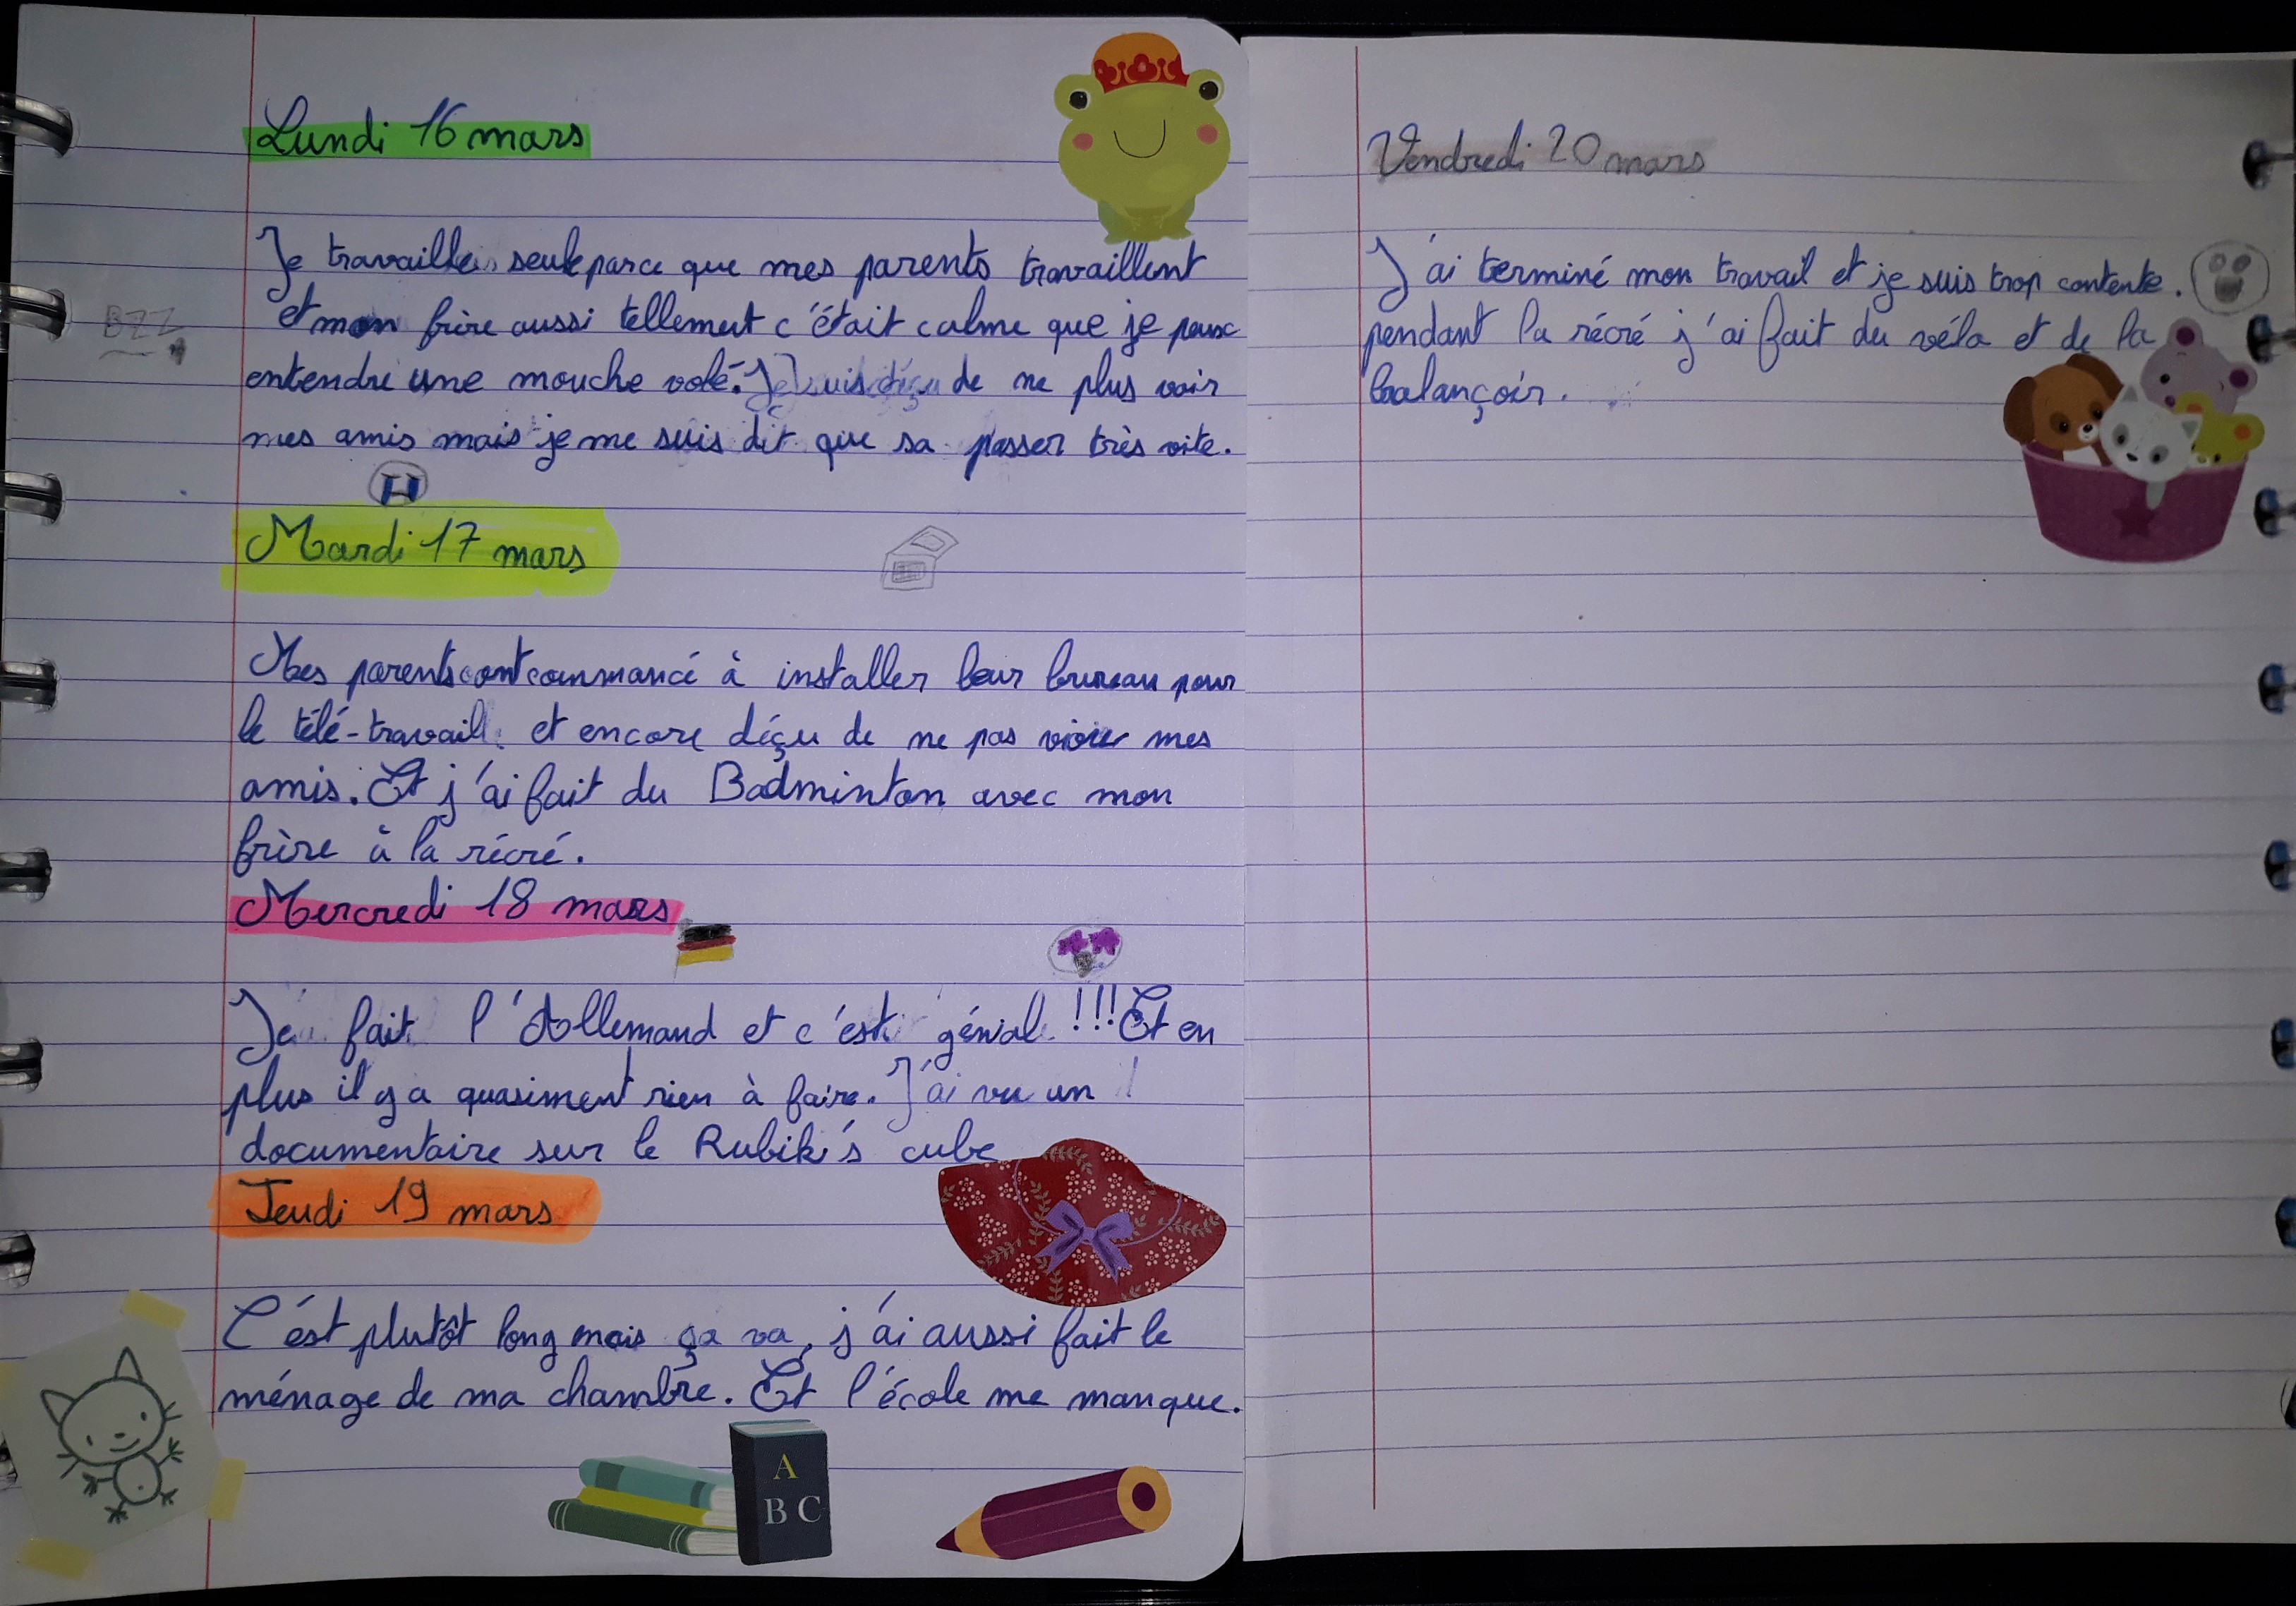 Lundi 16 mars
Je travaille seule parce que mes parents travaillent
et mon frère aussi tellement c'était calme que je peux
BZZ
entendre une mouche volé. Je suis déçu de ne plus voir
mes amis mais je me suis dit que sa passer très vite.
Mardi 17 mars
Mes parents ont commancé à installer leur bureau pour
le télé-travail et encore déçu de ne pas voir mes
amis. Et j'ai fait du Badminton avec mon
frère à la récré.
Mercredi 18 mars
Je fait l'Allemand et c'est génial !!! Et en
plus il y a quasiment rien à faire. J'ai vu un
documentaire sur le Rubik's cube
Jeudi 19 mars
C'est plutôt long mais ça va, j'ai aussi fait le
ménage de ma chambre. Et l'école me manque.
A
B C
Vendredi 20 mars
J'ai terminé mon travail et je suis trop contente.
pendant la récré j'ai fait du vélo et de la
balançoir.